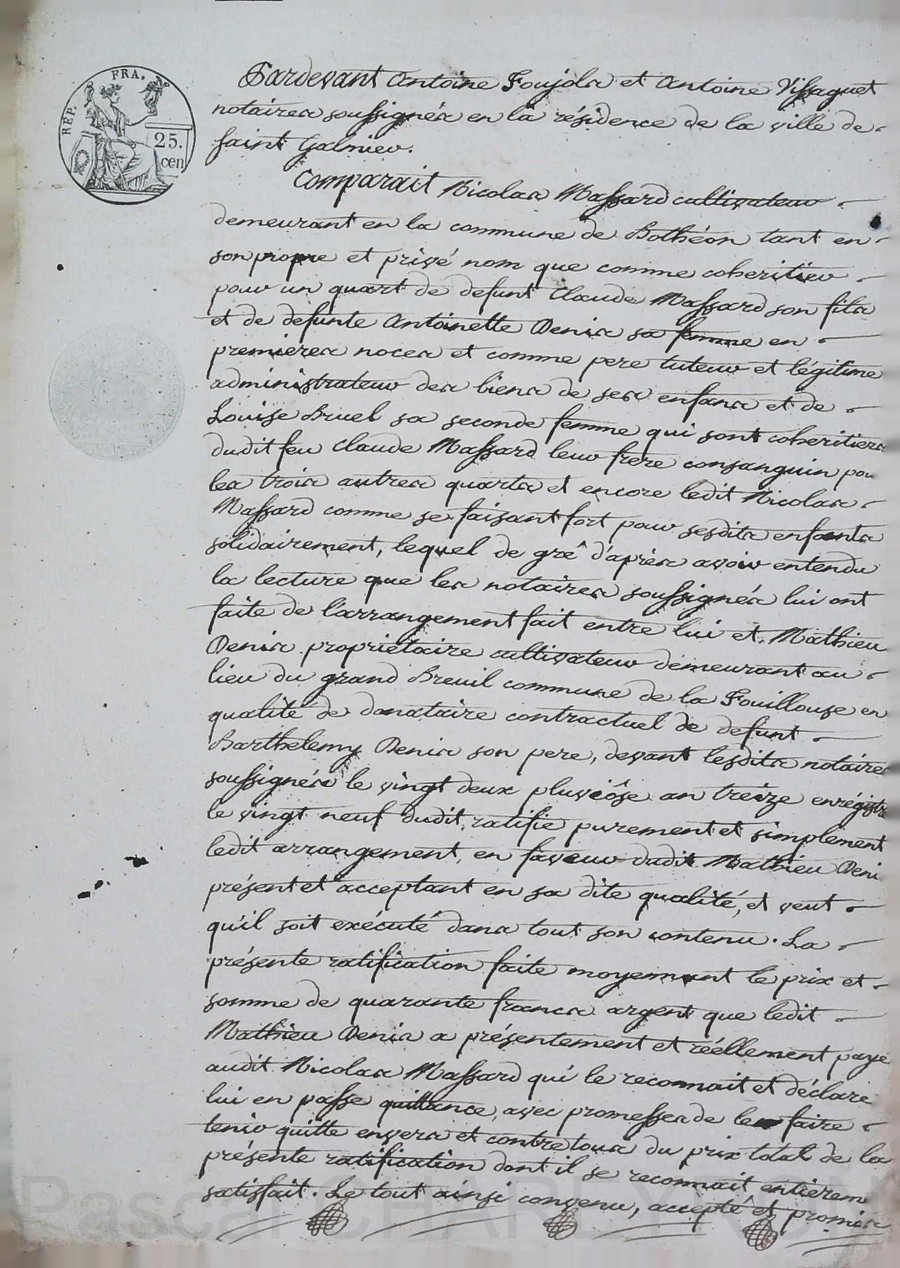 REP. FRA.
25.
cen
Pardevant Antoine Foujols et Antoine Vissaguet
notaires soussignés en la résidence de la ville de
saint Galmier.
Comparait Nicolas Massard cultivateur
demeurant en la commune de Bothéon tant en
son propre et privé nom que comme coheritier
pour un quart de defunt Claude Massard son fils
et de défunte Antoinette Denis sa femme en
premieres noces et comme pere tuteur et légitime
administrateur des biens de ses enfans et de
Louise Bruel sa seconde femme qui sont coheritiers
dudit feu Claude Massard leur frere consanguin pou
les trois autres quarts et encore ledit Nicolas
Massard comme se faisant fort pour sesdits enfants
solidairement, lequel de gré d'après avoir entendu
la lecture que les notaires soussignés lui ont
faite de l'arrangement fait entre lui et Mathieu
Denis propriétaire cultivateur demeurant au
lieu du grand Breuil commune de la Fouillouse en
qualité de donataire contractuel de defunt
Barthelemy Denis son pere, devant lesdits notaires
soussignés le vingt deux pluviôse an treize enrégistré
le vingt neuf dudit, ratifie purement et simplement
ledit arrangement, en faveur dudit Mathieu Deni
présent et acceptant en sa dite qualité, et veut
qu'il soit exécuté dans tout son contenu. La
présente ratification faite moyennant le prix et
somme de quarante francs argent que ledit
Mathieu Denis a présentement et réellement payé
audit Nicolas Massard qui le reconnait et déclare
lui en passe quittance, avec promesses de le faire
tenir quitte envers et contre tous du prix total de la
présente ratification dont il se reconnait entierem
satisfait. Le tout ainsi convenu, accepté et promis
Pascal CHARLYRON